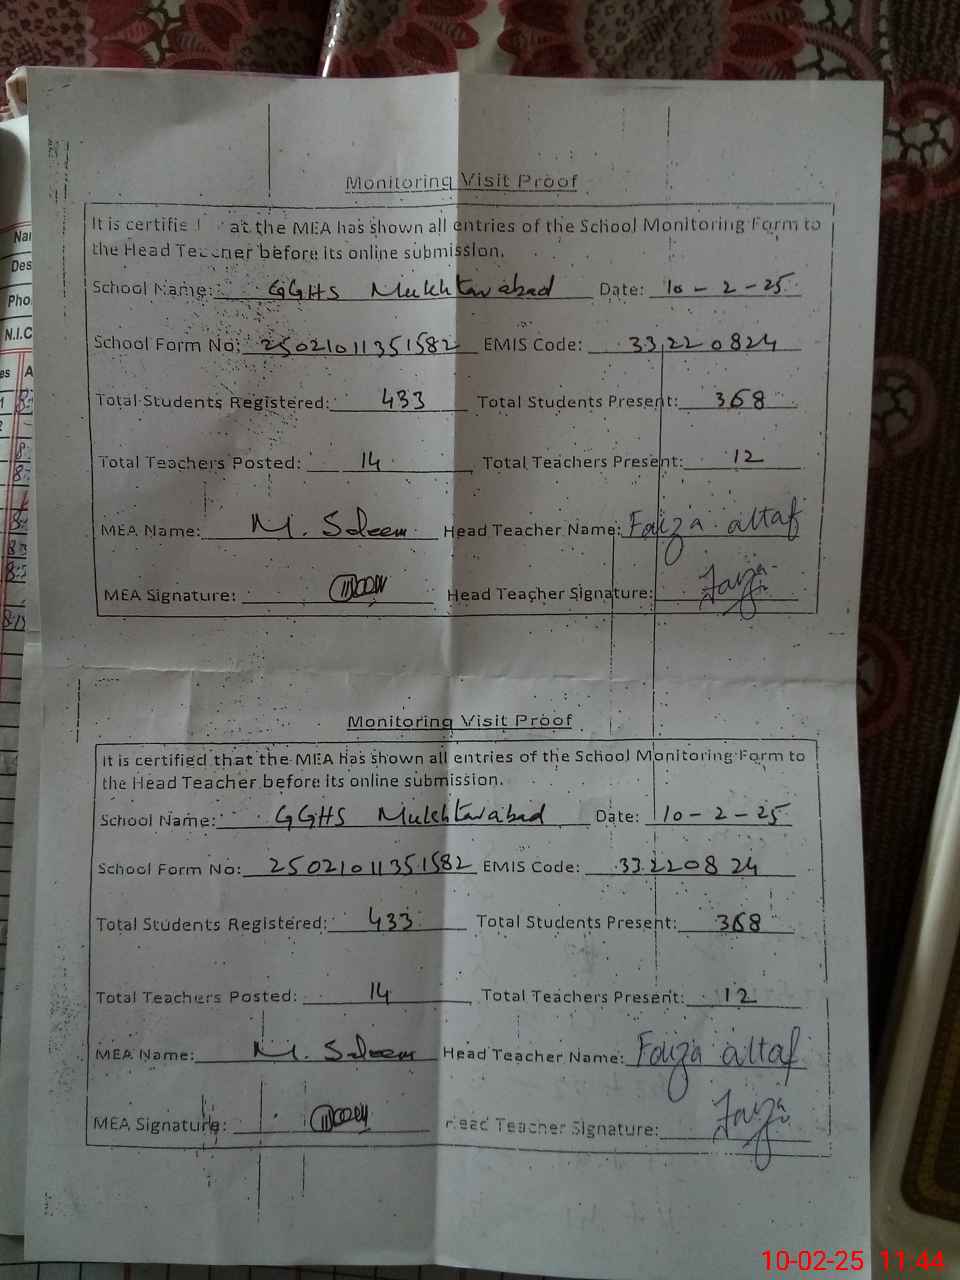 Monitoring Visit Proof
It is certifie at the MEA has shown all entries of the School Monitoring Form to
the Head Teacher before its online submission.
School Name: GGHS Mukhtarabad Date: 10-2-25
School Form No: 25021011351582 EMIS Code: 33220824
Total Students Registered: 433 Total Students Present: 368
Total Teachers Posted: 14 Total Teachers Present: 12
MEA Name: M. Saleem Head Teacher Name: Faiza altaf
MEA Signature: Head Teacher Signature: Faiza
Monitoring Visit Proof
It is certified that the MEA has shown all entries of the School Monitoring Form to
the Head Teacher before its online submission.
School Name: GGHS Mukhtarabad Date: 10-2-25
School Form No: 25021011351582 EMIS Code: 33220824
Total Students Registered: 433 Total Students Present: 368
Total Teachers Posted: 14 Total Teachers Present: 12
MEA Name: M. Saleem Head Teacher Name: Faiza altaf
MEA Signature: Head Teacher Signature: Faiza
Nai
Des
Pho
N.I.C
es A
10-02-25 11:44